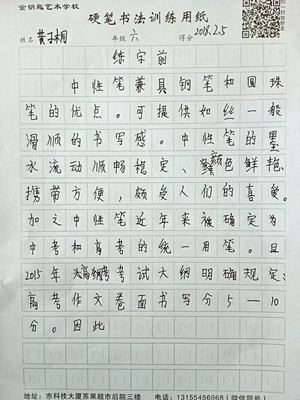 金钥匙艺术学校
硬笔书法训练用纸
姓名 黄子桐 年级 六 得分 2018.2.5
练字前
中性笔兼具钢笔和圆珠
笔的优点。可提供如丝一般
滑顺的书写感。中性笔的墨
水流动顺畅稳定、颜色鲜艳
携带方便,颇受人们的喜爱。
加之中性笔近年来被确定为
中考和高考的统一用笔。且
2015年 高考考试大纲明确规定:
高考作文卷面书写分5—10
分。因此
地址:市科技大厦苏果超市后院三楼 电话:13155456968(微信同号)